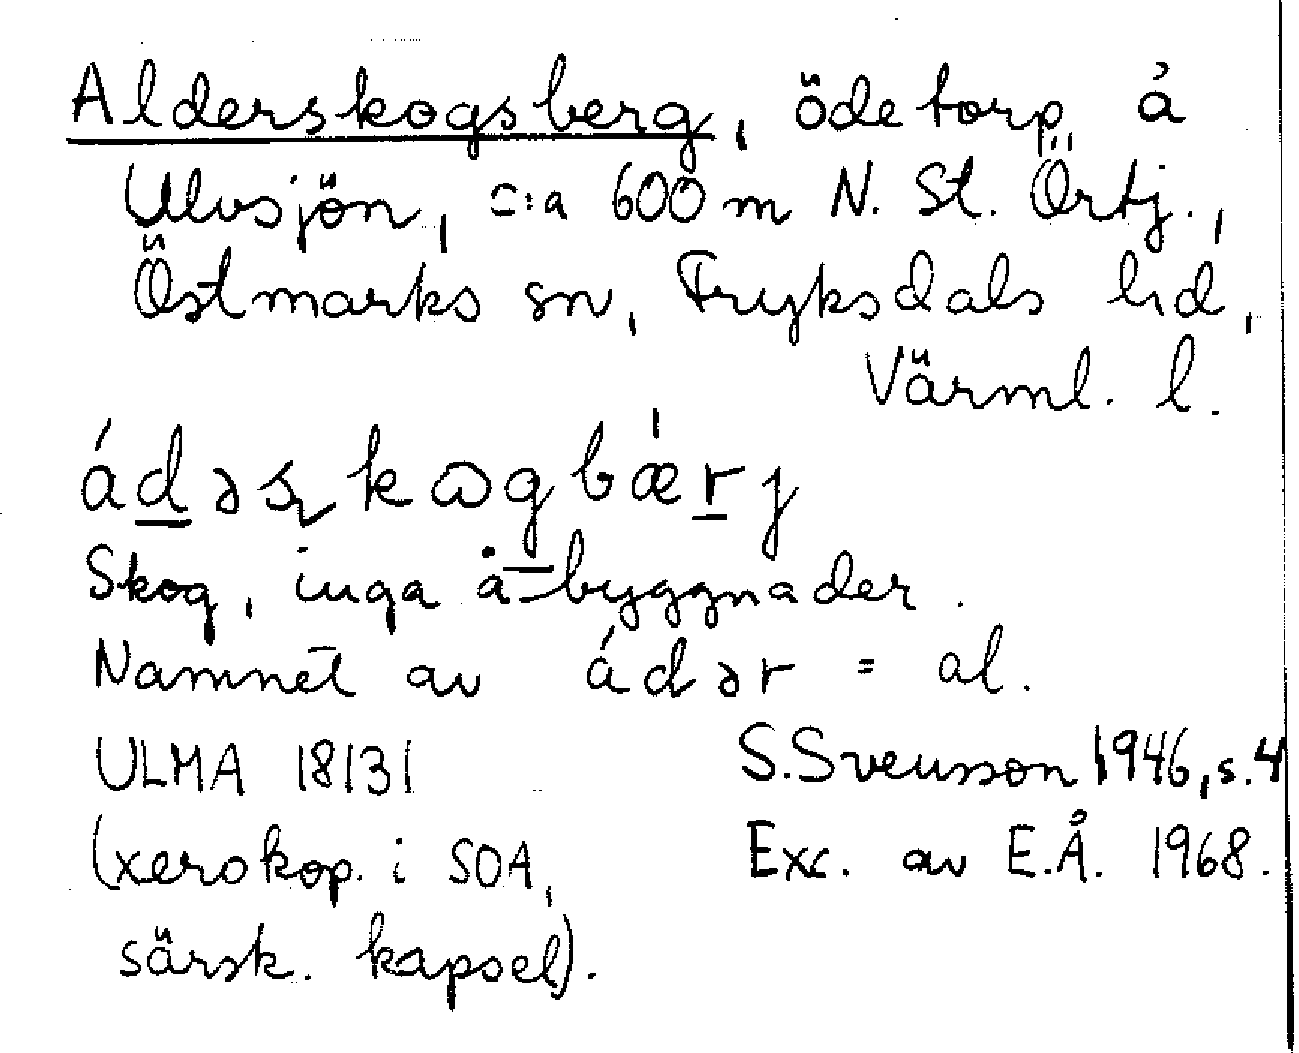 Alderskogsberg, ödetorp å
Ulvsjön, c:a 600 m N. St. Örtj.,
Östmarks sn, Fryksdals hd,
Värml. l.
ádəʂkɷgbǽrj
Skog, inga å-byggnader.
Namnet av ádər = al.
ULMA 18131 S. Svensson 1946, s. 4
(xerokop. i SOA, Exc. av E.Å. 1968.
särsk. kapsel).